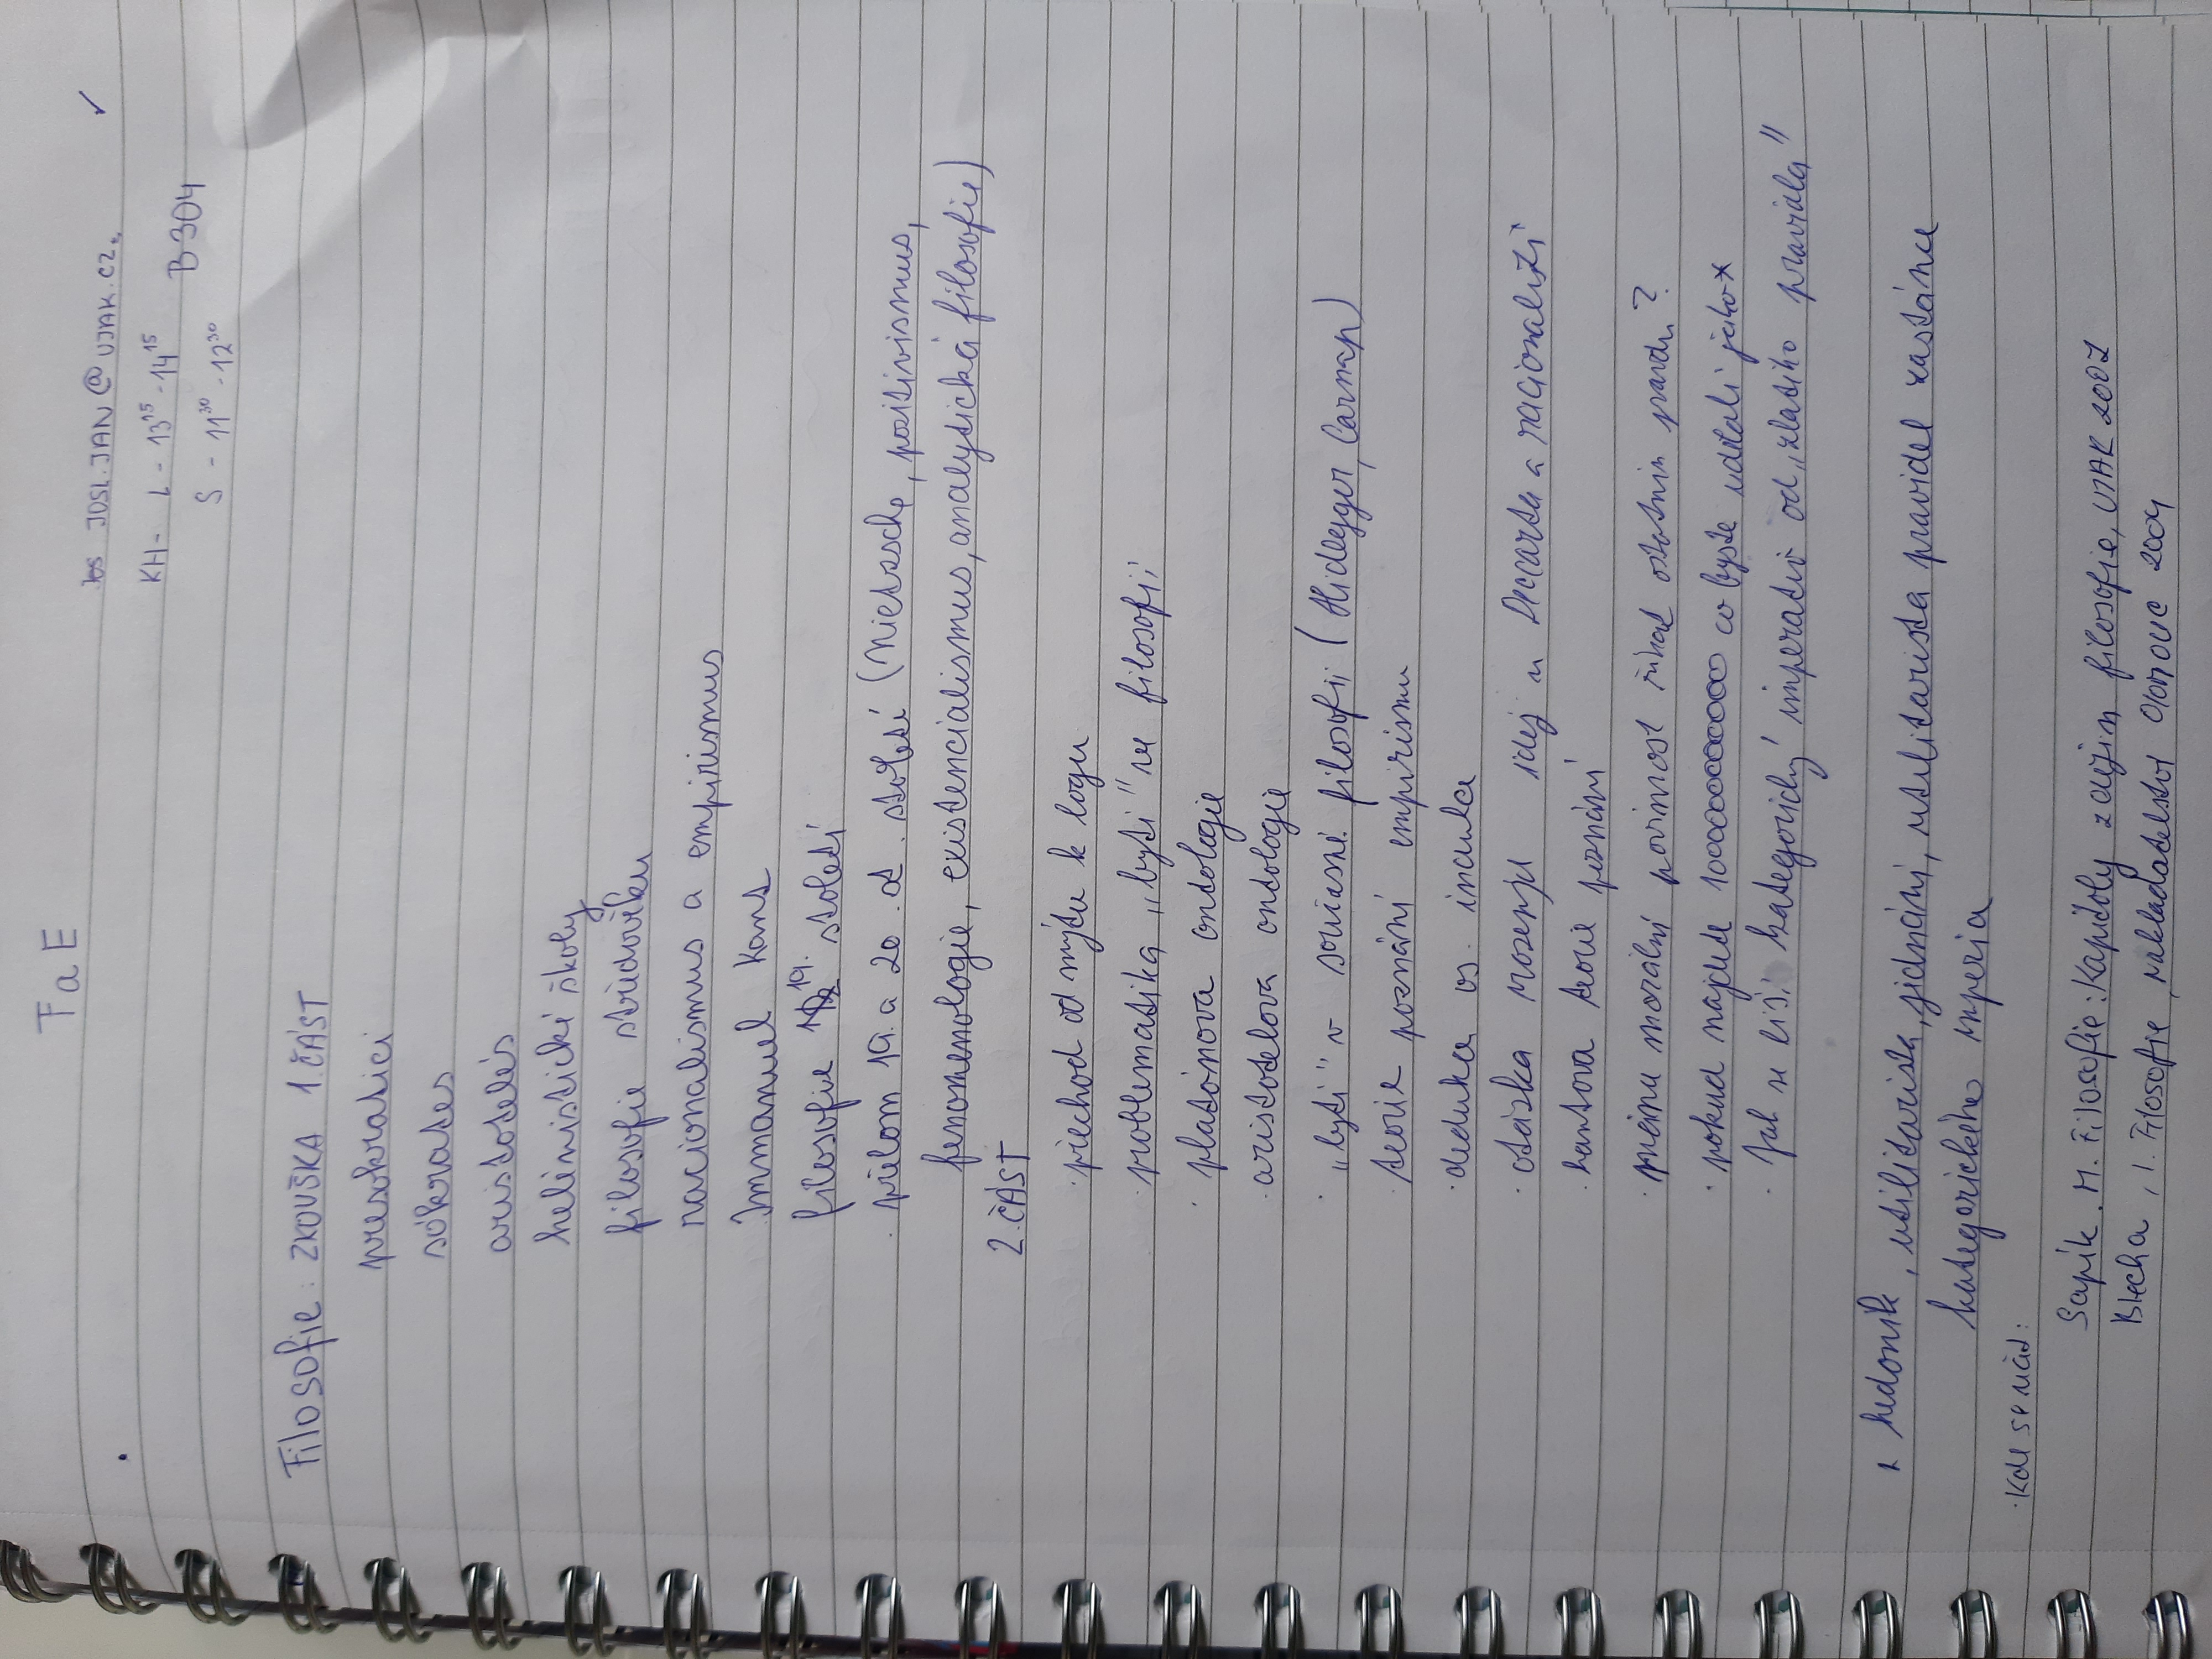 FaE
JOSL.JAN@UJAK.CZ
KH- L - 13¹⁵ - 14¹⁵
S - 11³⁰ - 12³⁰ B304
FilosOfie: ZKOUŠKA 1.ČÁST
presokratici
sókrates
aristotelés
helénistické školy
filosofie středověku
racionalismus a empirismus
Immanuel Kant
filosofie 19. století
přelom 19. a 20. st. století (Nietzsche, pozitivismus,
fenomenologie, existencialismus, analytická filosofie)
2. ČÁST
· přechod od mýtu k logu
· problematika „bytí" ve filosofii
· platónova ontologie
· aristotelova ontologie
· „bytí" v současné filosofii (Heidegger, Carnap)
· teorie poznání empirismu
· dedukce vs. indukce
· otázka vrozených idejí u Descarta a racionalistů
· kantova teorie poznání
· máme morální povinnost říkat ostatním pravdu?
· pokud najdete 10000000000 co byste udělali jako*
· Jak se liší kategorický imperativ od „zlatého pravidla"
* hedonik, utilitarista jednání, utilitarista pravidel zastánce
kategorického imperia
· Kde se učit:
Sapík, M. Filosofie: Kapitoly z dějin filosofie, UJAK 2007
Blecha, I. Filosofie, nakladatelství Olomouc 2004